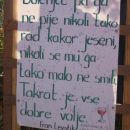 Dolenjec pa ga
ne pije nikoli tako
rad kakor jeseni,
nikoli se mu ga
tako malo ne smili.
Takrat je vse
dobre volje.
Fran Levstik